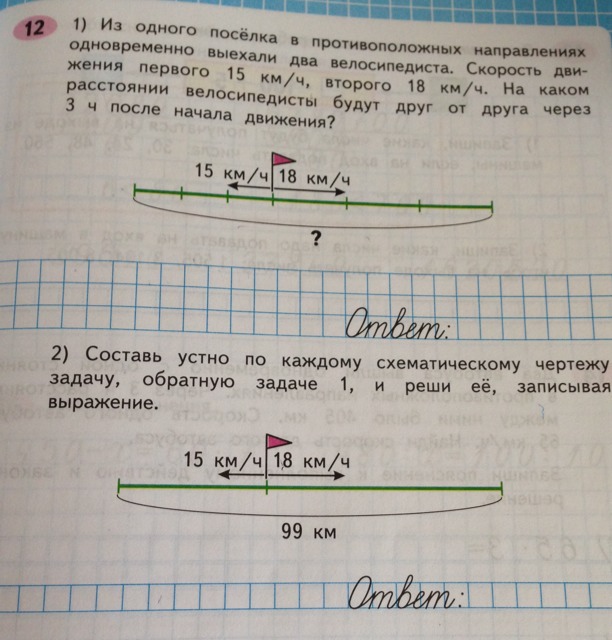 12 1) Из одного посёлка в противоположных направлениях
одновременно выехали два велосипедиста. Скорость дви-
жения первого 15 км/ч, второго 18 км/ч. На каком
расстоянии велосипедисты будут друг от друга через
3 ч после начала движения?
15 км/ч 18 км/ч
?
Ответ:
2) Составь устно по каждому схематическому чертежу
задачу, обратную задаче 1, и реши её, записывая
выражение.
15 км/ч 18 км/ч
99 км
Ответ: